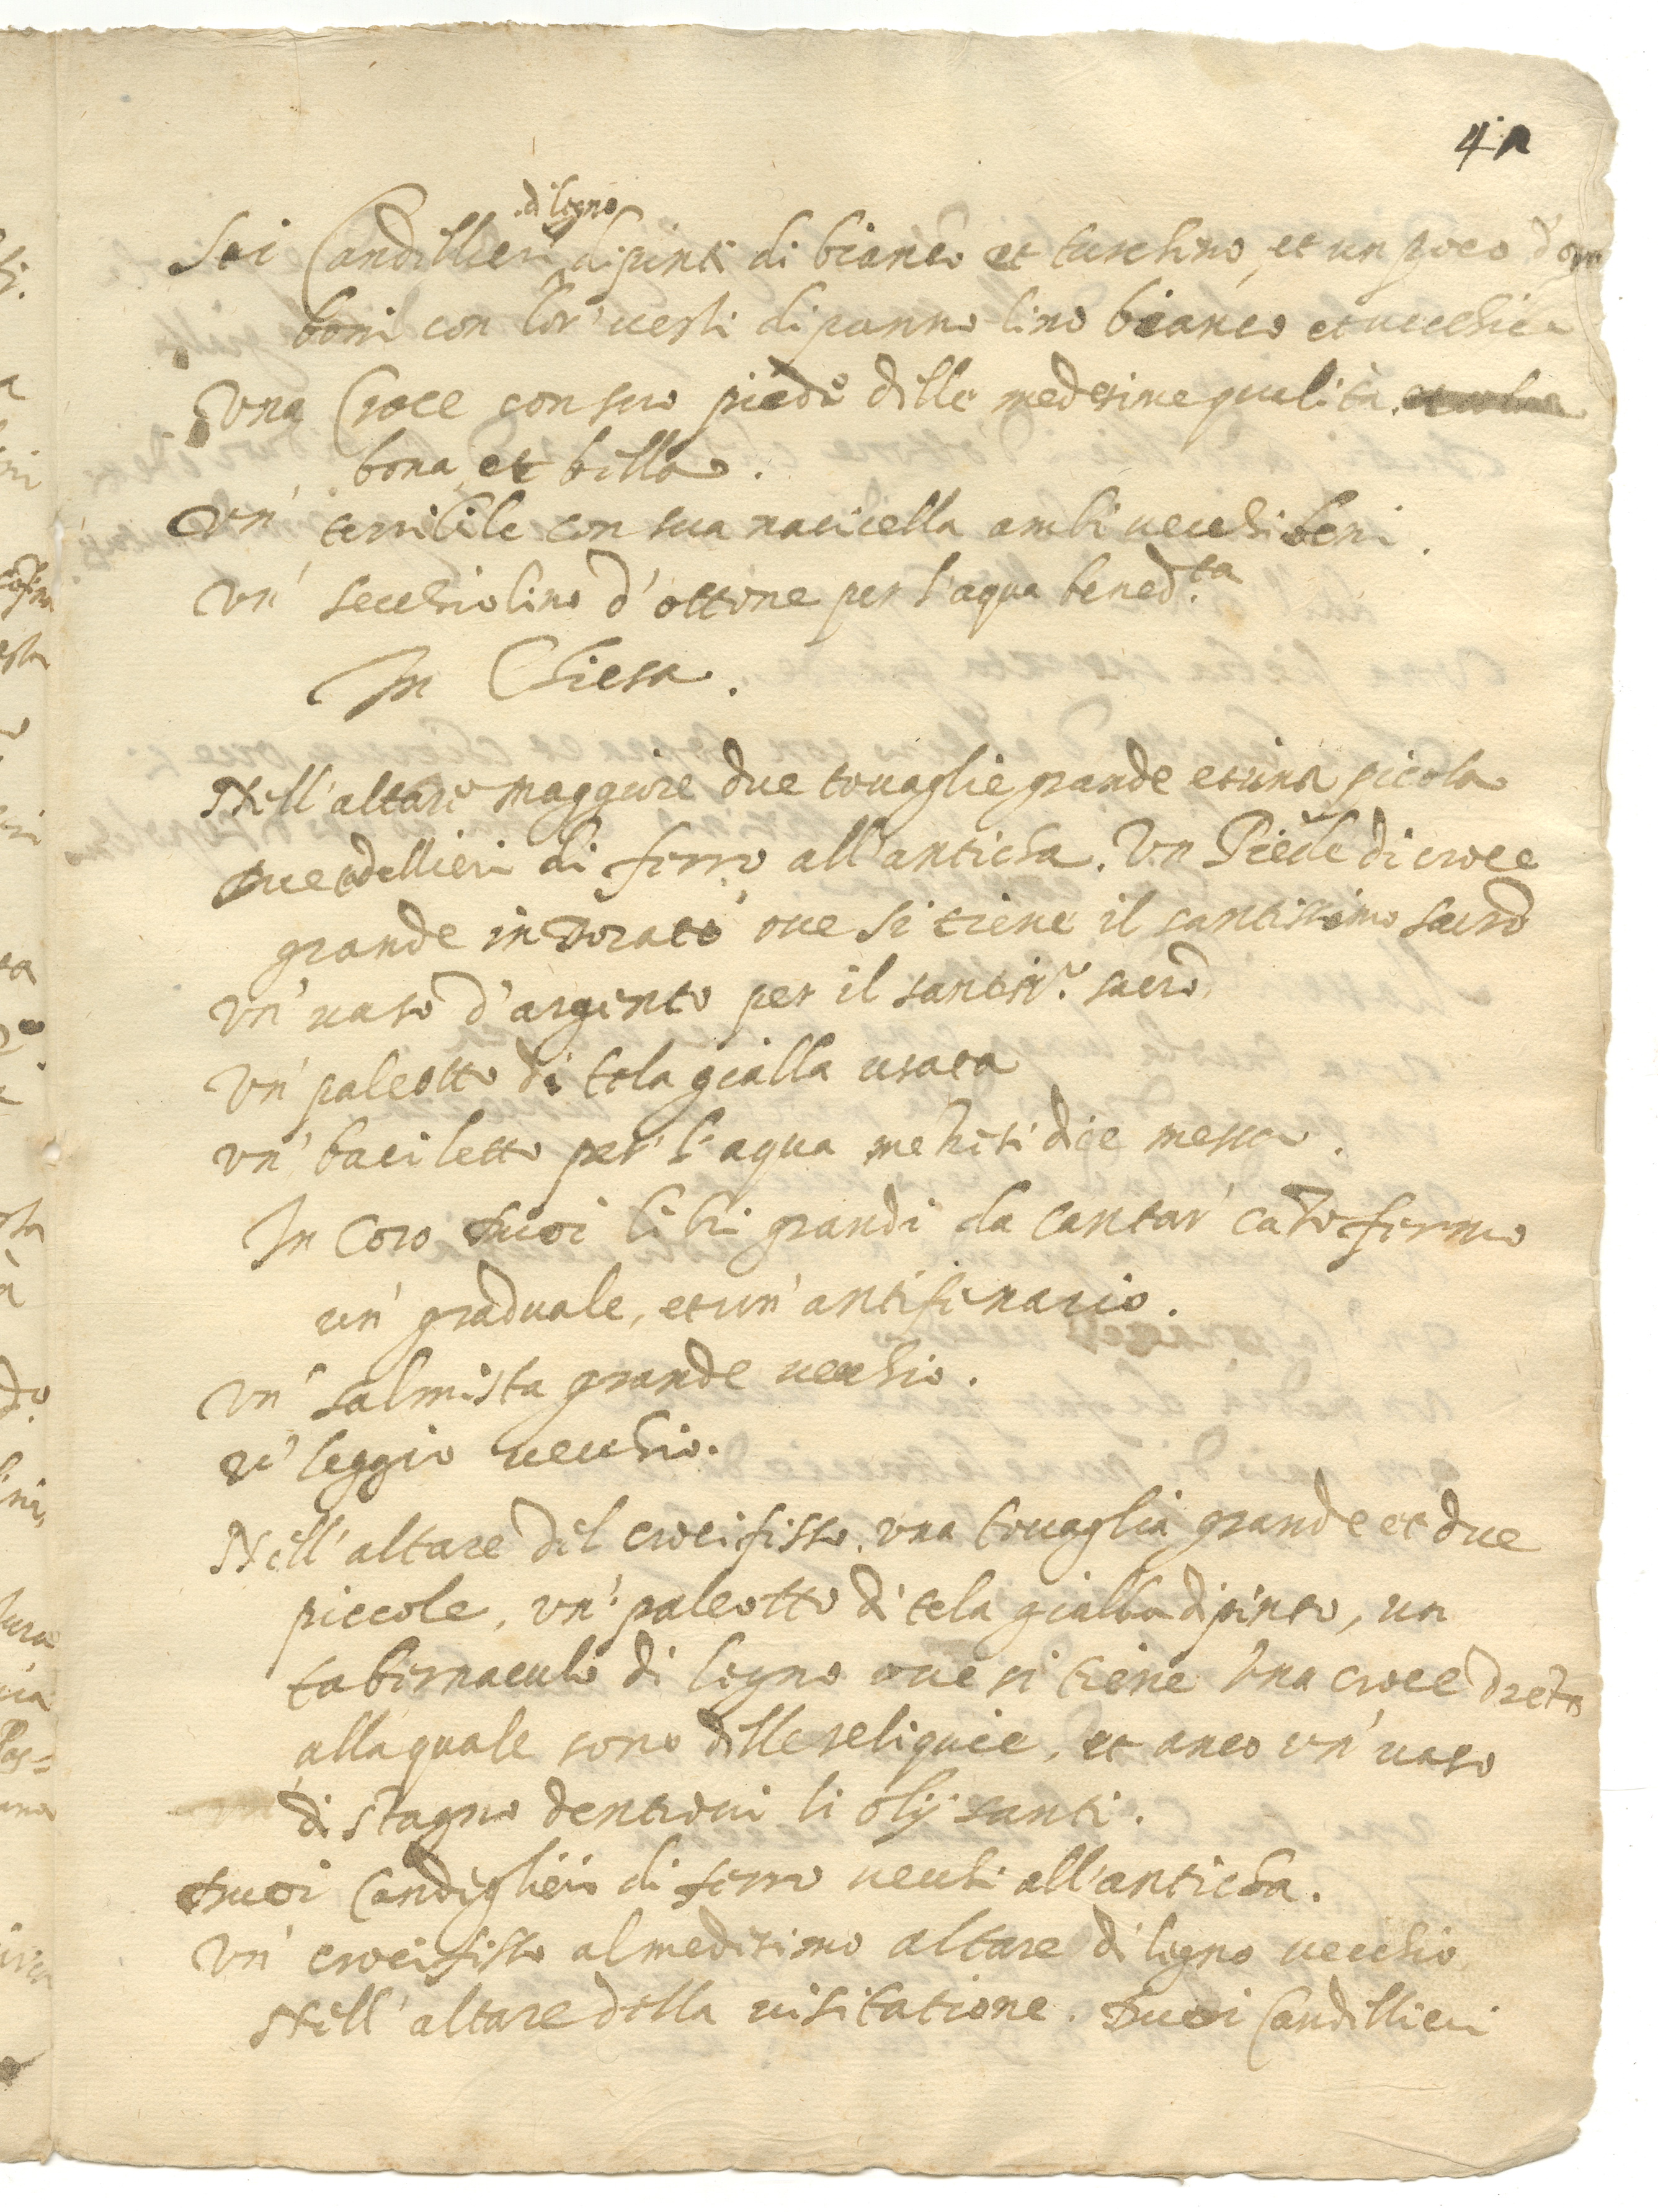 4 a
di legno
Sei Candillieri dipinti di bianco et turchino, et un poco d'oro
boni con lor' uesti di panno lino bianco et uecchie
Una Croce con suo piede delle medesime qualità
bona et bella.
Un' terribile con sua nauicella ambi uecchi boni.
Un' secchiolino d'ottone per l'aqua bened.ta
In Chiesa.
Nell'altare maggiore due touaglie grande et una picola
due cãdellieri di ferro all'anticha. Un Piede di croce
grande indorato oue si tiene il santissimo sacrõ
Un' uaso d'argento per il santiss.o sacrõ
Un' paleotto di tela gialla usata
un' baciletto per l'aqua mẽtre si dice messa.
In Coro duoi libri grandi da cantar' cãto fermo
un' graduale, et un' antifenario.
Un' salmista grande uechio.
ũ' leggio uecchio.
Nell'altare del crocifisso. una touaglia grande et due
piccole, un' paleotto di tela gialla dipinto, un
tabernaculo di legno oue si tiene una croce dreto
alla quale sono delle reliquie, et anco un' uaso
di stagno dentroui li olij santi.
duoi Candiglieri di ferro uechi all'anticha.
Un' crocifisso al medesimo altare di legno uecchio
Nell'altare della uisitatione. Duoi Candillieri